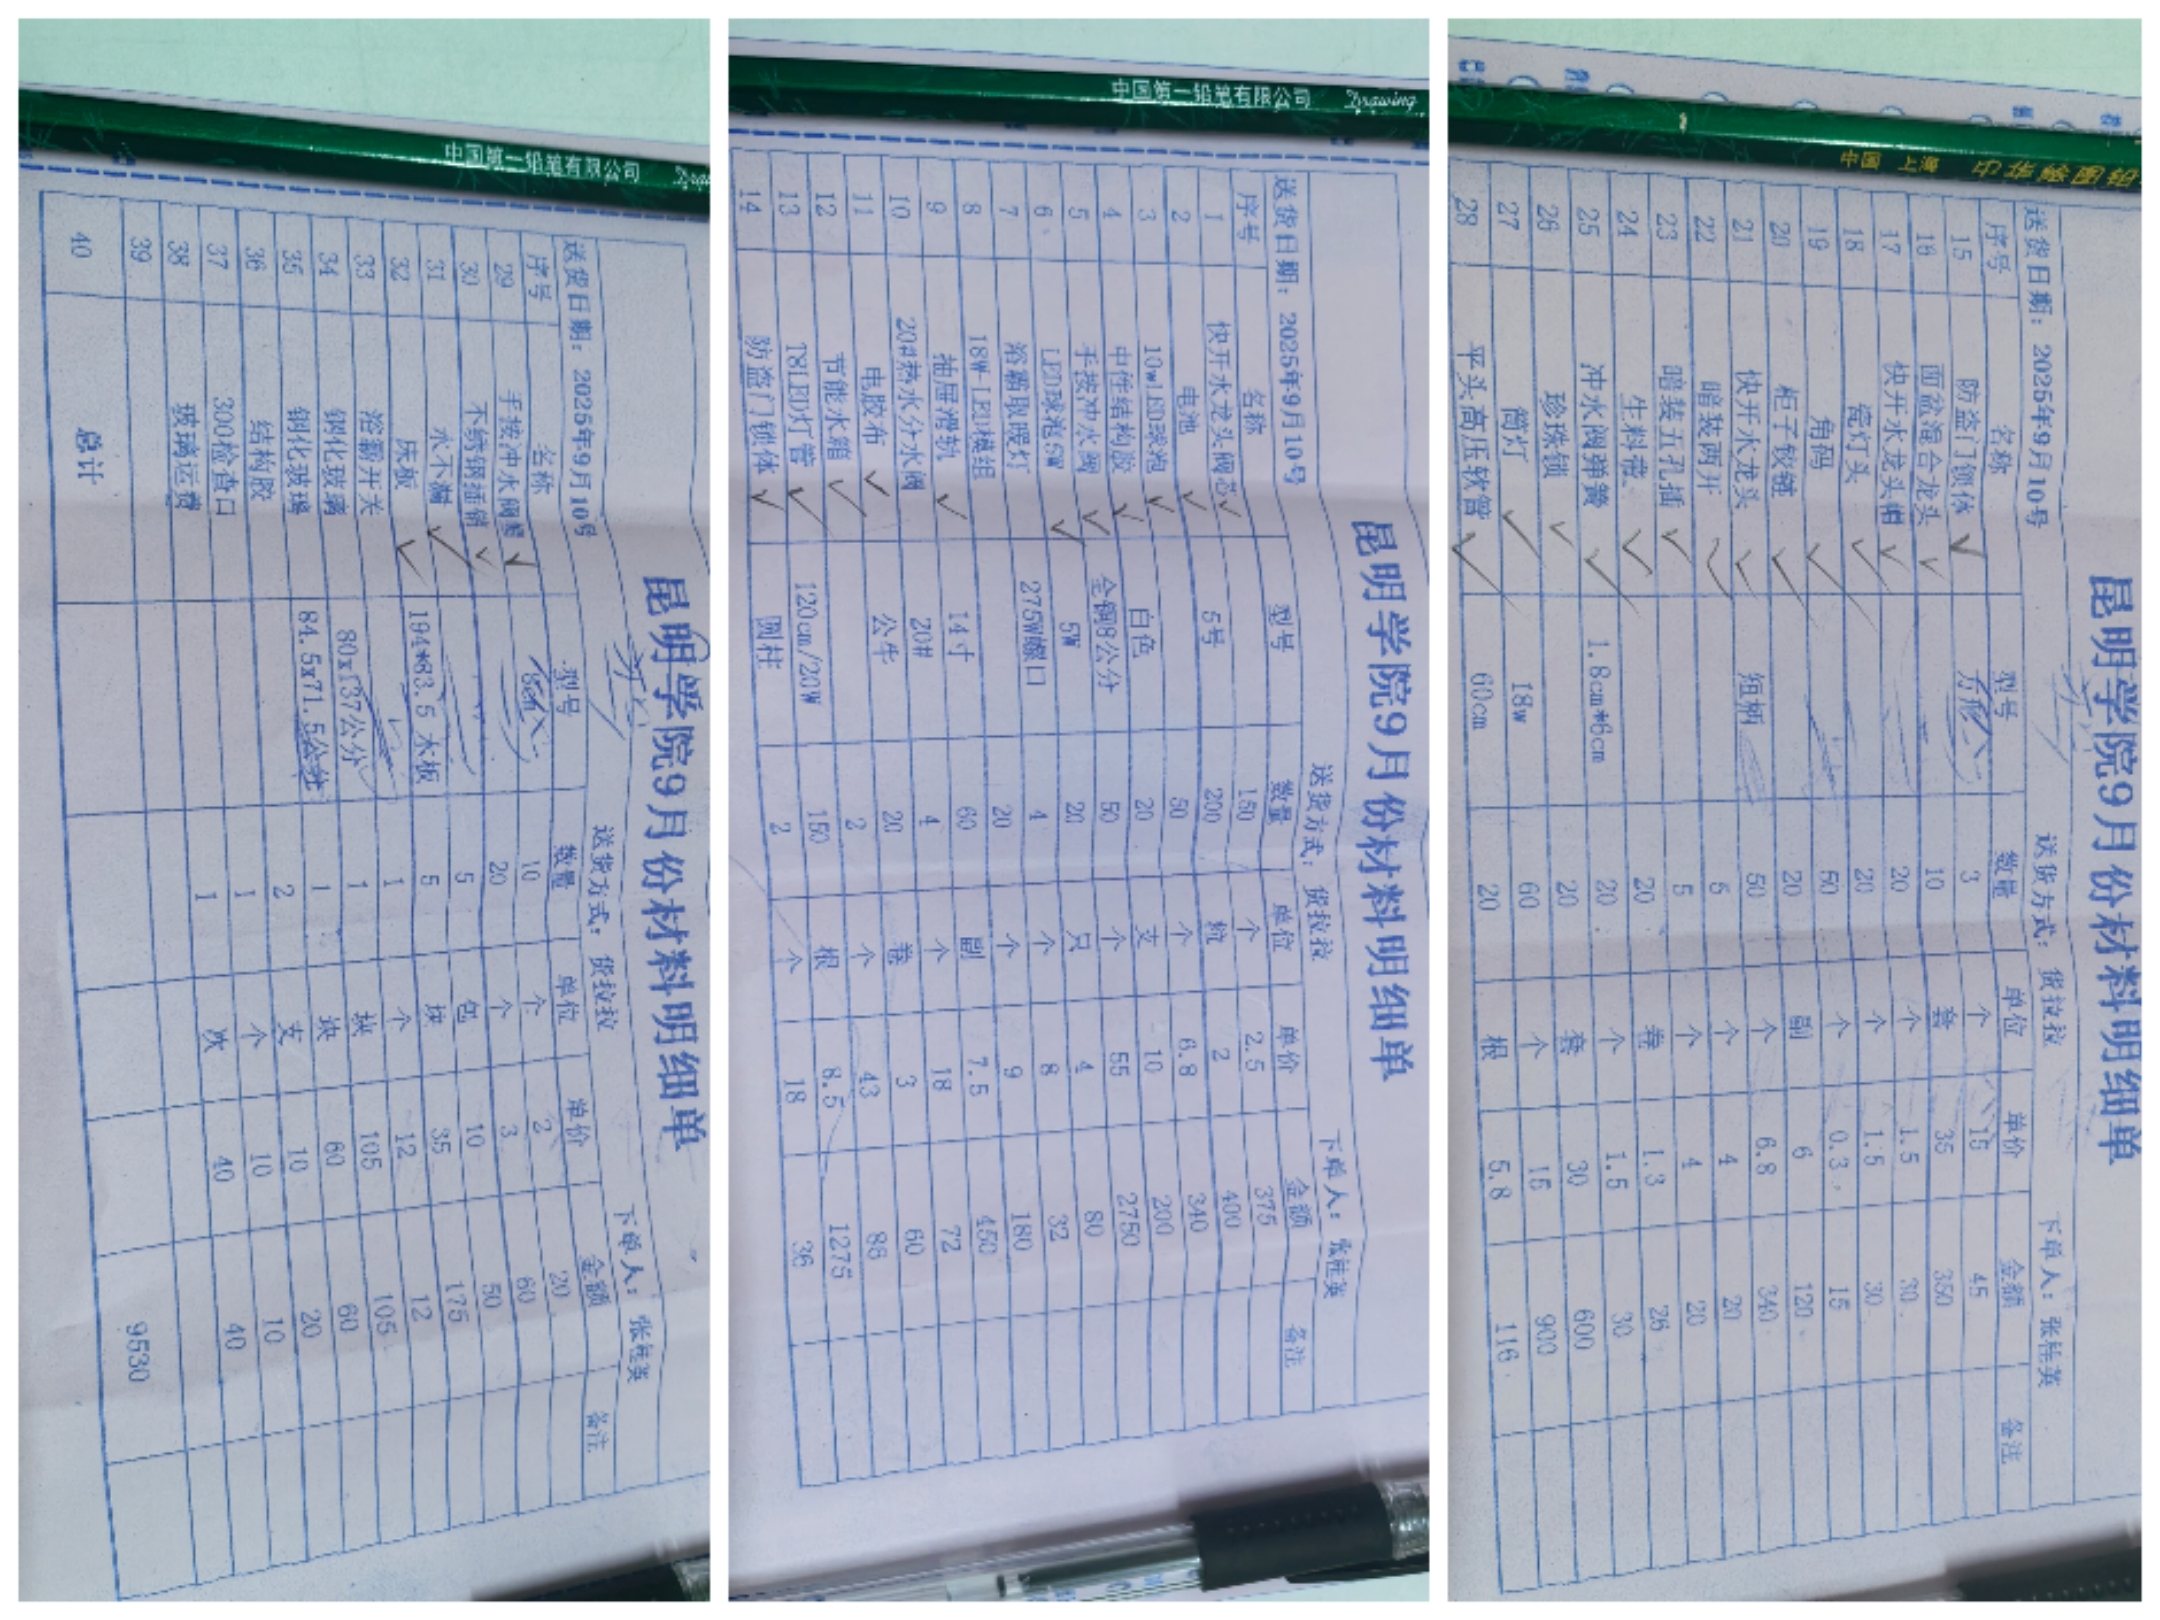 中国第一铅笔有限公司
昆明学院9月份材料明细单
送货日期：2025年9月10号 送货方式：货拉拉 下单人：张桂英
序号 名称 型号 数量 单位 单价 金额 备注
29 手按冲水阀 10 个 2 20
30 不绣钢插销 20 个 3 60
31 水不漏 5 包 10 50
32 床板 194*83.5 木板 5 块 35 175
33 浴霸开关 1 个 12 12
34 钢化玻璃 80x137公分 1 块 105 105
35 钢化玻璃 84.5x71.5公分 1 块 60 60
36 结构胶 2 支 10 20
37 300检查口 1 个 10 10
38 玻璃运费 1 次 40 40
39
40 总计 9530
中国第一铅笔有限公司 Drawing
昆明学院9月份材料明细单
送货日期：2025年9月10号 送货方式：货拉拉 下单人：张桂英
序号 名称 型号 数量 单位 单价 金额 备注
1 快开水龙头阀芯 150 个 2.5 375
2 电池 5号 200 粒 2 400
3 10wLED球泡 50 个 6.8 340
4 中性结构胶 白色 20 支 10 200
5 手按冲水阀 全铜8公分 50 个 55 2750
6 LED球泡5W 5W 20 只 4 80
7 浴霸取暖灯 275W螺口 4 个 8 32
8 18W-LED模组 20 个 9 180
9 抽屉滑轨 14寸 60 副 7.5 450
10 20#热水分水阀 20# 4 个 18 72
11 电胶布 公牛 20 卷 3 60
12 节能水箱 2 个 43 86
13 T8LED灯管 120cm/20W 150 根 8.5 1275
14 防盗门锁体 圆柱 2 个 18 36
中国 上海 中华绘图铅
昆明学院9月份材料明细单
送货日期：2025年9月10号 送货方式：货拉拉 下单人：张桂英
序号 名称 型号 数量 单位 单价 金额 备注
15 防盗门锁体 方形 3 个 15 45
16 面盆混合龙头 10 套 35 350
17 快开水龙头帽 20 个 1.5 30
18 瓷灯头 20 个 1.5 30
19 角码 50 个 0.3 15
20 柜子铰链 20 副 6 120
21 快开水龙头 短柄 50 个 6.8 340
22 暗装两开 5 个 4 20
23 暗装五孔插 5 个 4 20
24 生料带 20 卷 1.3 26
25 冲水阀弹簧 1.8cm*6cm 20 个 1.5 30
26 珍珠锁 20 套 30 600
27 筒灯 18w 60 个 15 900
28 平头高压软管 60cm 20 根 5.8 116